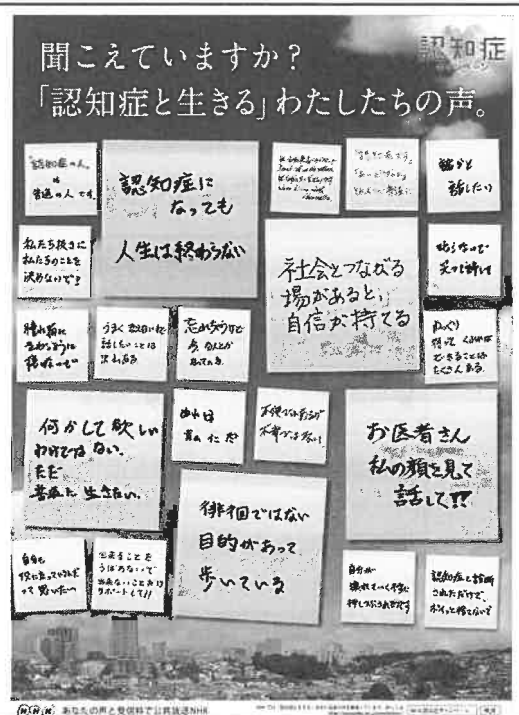 聞こえていますか？
認知症
「認知症と生きる」わたしたちの声。
「認知症の人」
は
普通の人です。
認知症に
なっても
人生は終わらない
誰かと
話したい
私たち抜きに
私たちのことを
決めないで!
社会とつながる
場があると、
自信が持てる
怒らないで
笑って許して
腫れ物に
さわるように
うまく
話したいことは
沢山ある
忘れちゃうけど
ゆっくり
待って くれれば
できることは
たくさんある
何かして欲しい
わけではない。
ただ
普通に生きたい。
おれは
不便ではあるが
不幸ではない。
お医者さん
私の顔を見て
話して!!
徘徊ではない
目的があって
歩いている
自分も
役に立ってるんだ
って思いたい
出来ることを
うばわないで
出来ないことだけ
サポートして!!
自分が
壊れていく不安に
押しつぶされそうです
認知症と診断
されただけで、
ポイッと捨てないで
NHK あなたの声と受信料で公共放送NHK